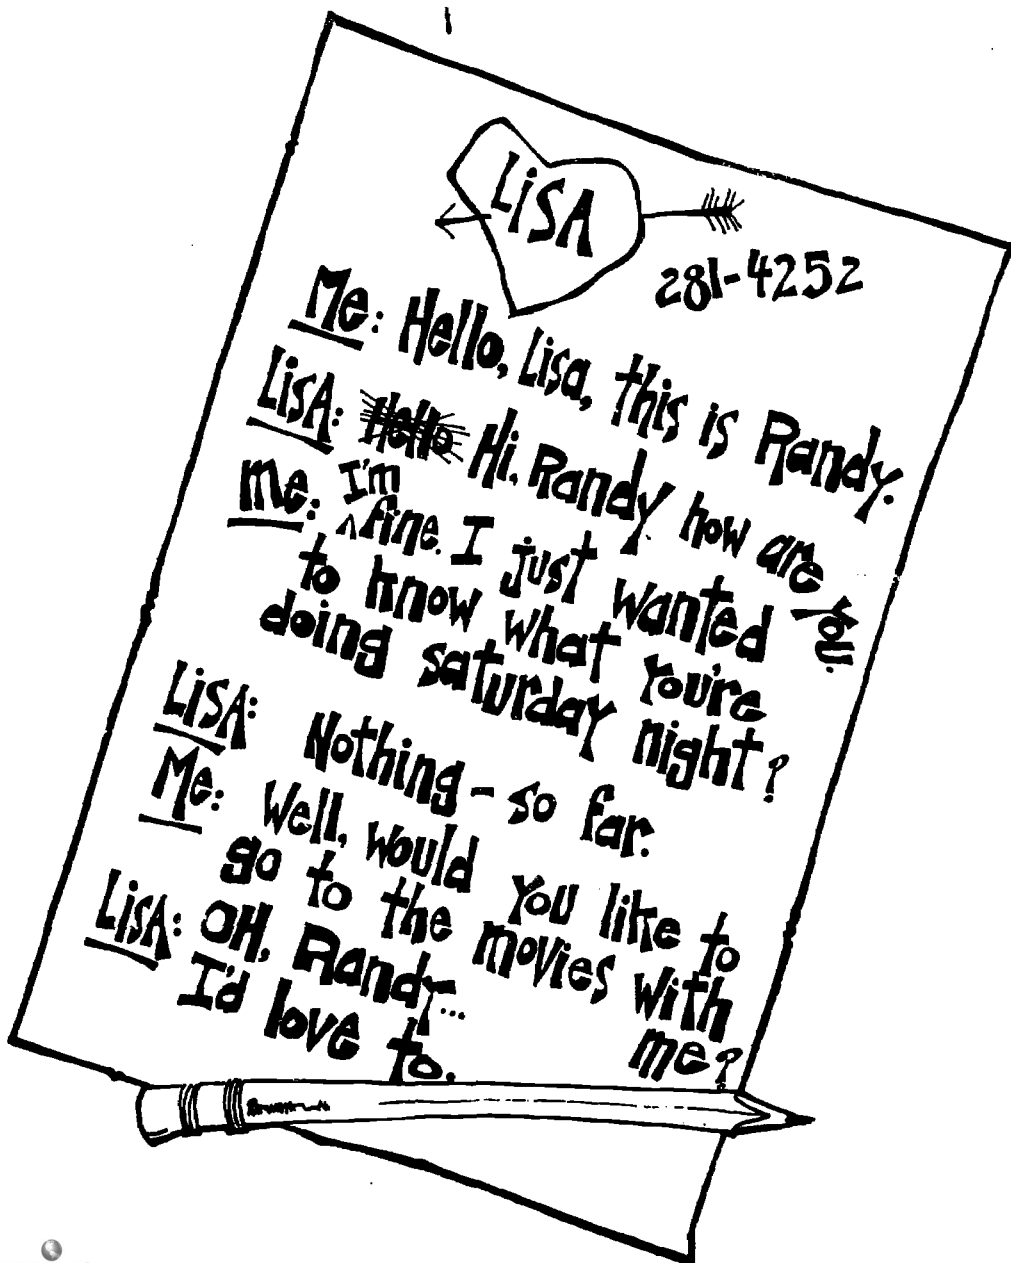 LiSA
281-4252
Me: Hello, Lisa, this is Randy.
LiSA: Hello Hi. Randy how are you.
me: I'm fine. I just wanted
to know what you're
doing saturday night?
LiSA: Nothing - so far.
Me: Well, would you like to
go to the movies with
me?
LiSA: OH, Randy...
I'd love to.